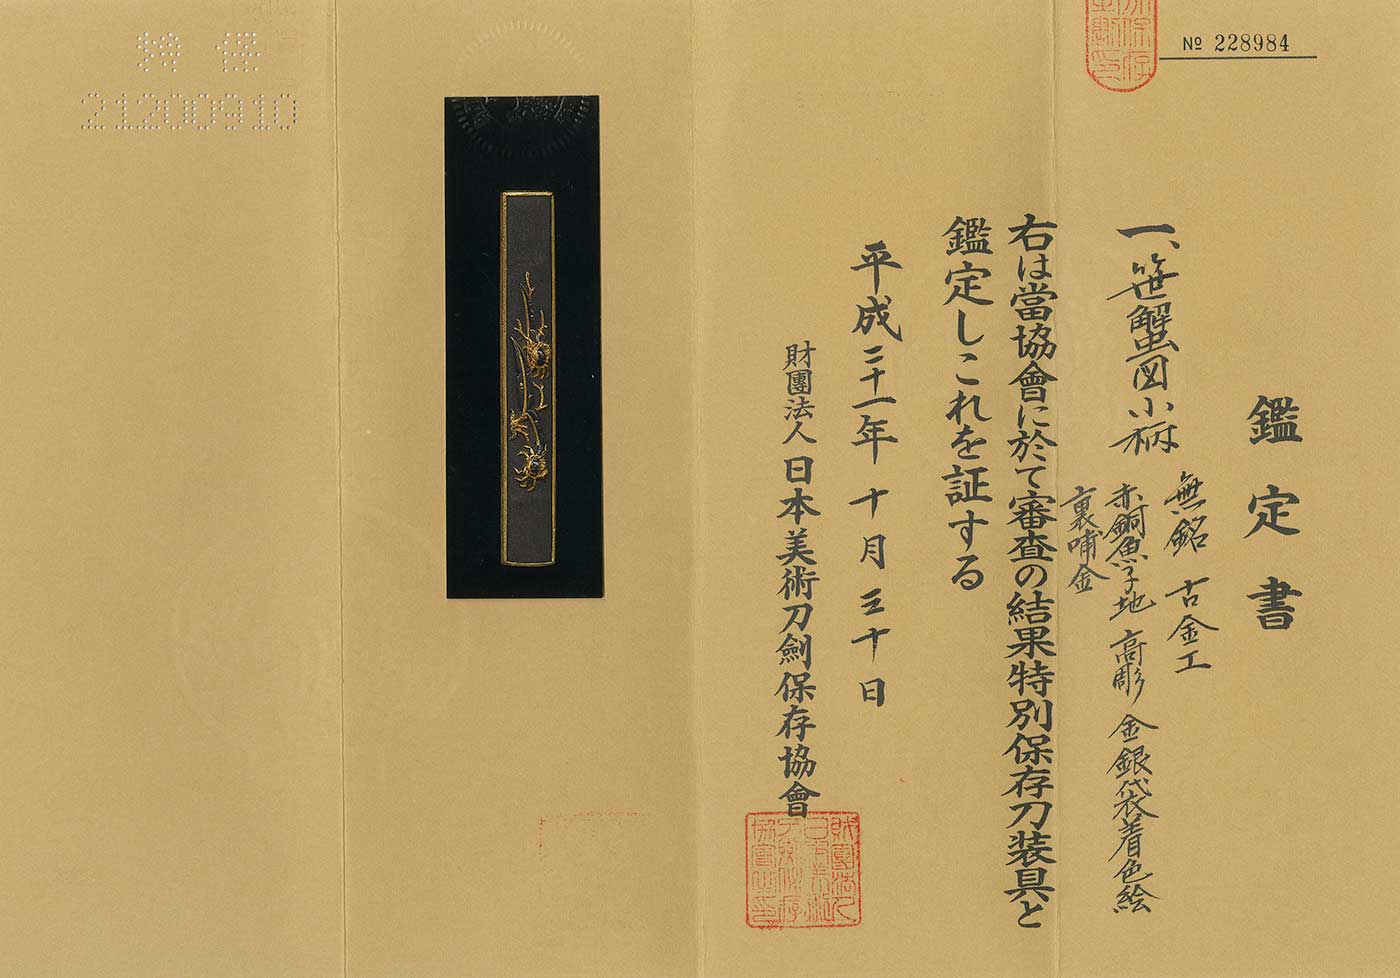 № 228984
鑑定書
一、笹蟹図小柄
無銘 古金工
赤銅魚子地 高彫 金銀袋着色絵
裏哺金
右は當協會に於て審査の結果特別保存刀装具と
鑑定しこれを証する
平成二十一年 十月 三十日
財團法人日本美術刀劍保存協會
21200910